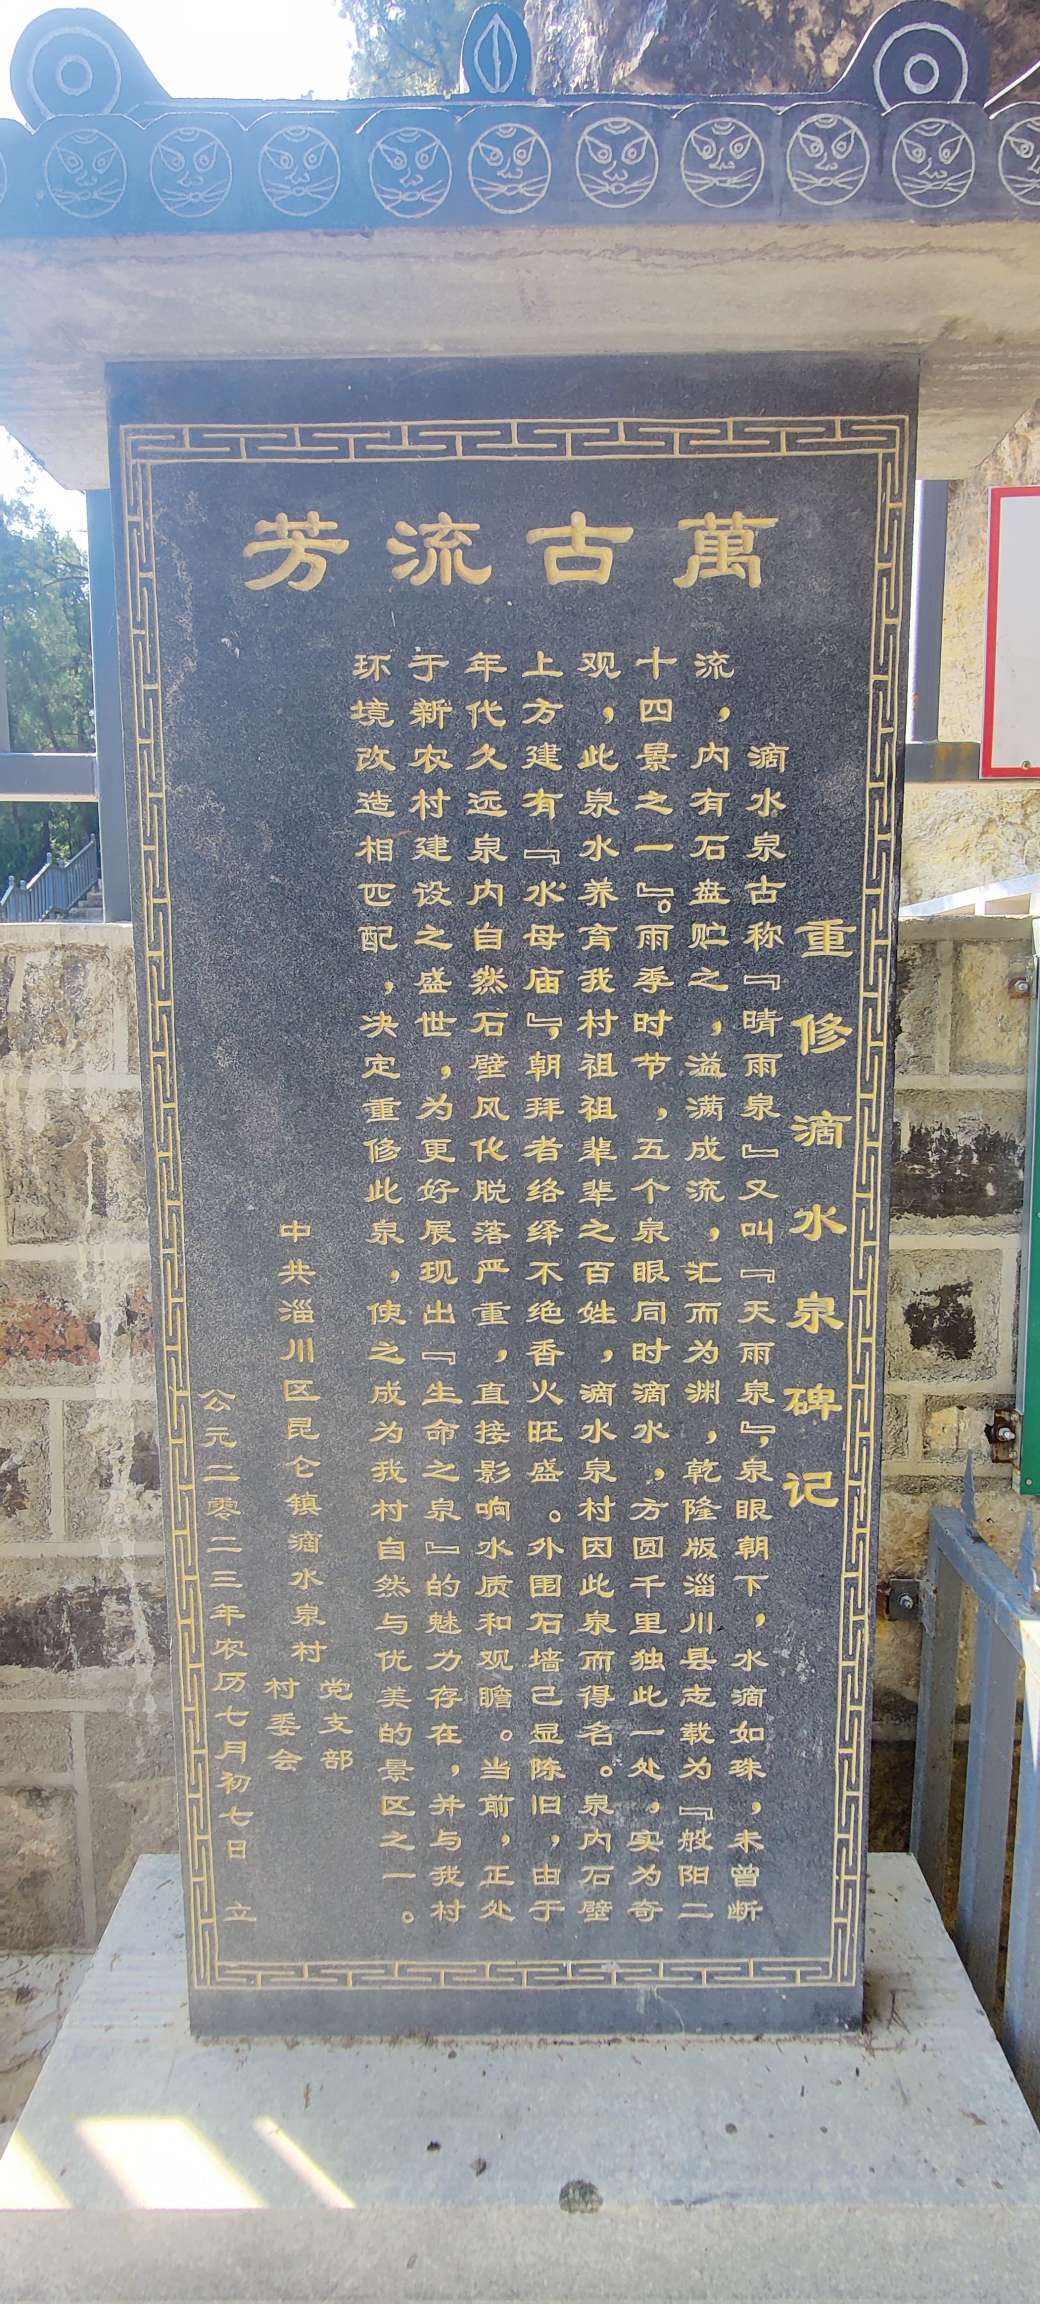 萬古流芳
重修滴水泉碑记
滴水泉古称『晴雨泉』又叫『天雨泉』，泉眼朝下，水滴如珠，未曾断
流，内有石盘贮之，溢满成流，汇而为渊，乾隆版淄川县志载为『般阳二
十四景之一』。雨季时节，五个泉眼同时滴水，方圆千里独此一处，实为奇
观，此泉水养育我村祖祖辈辈之百姓，滴水泉村因此泉而得名。泉内石壁
上方建有『水母庙』，朝拜者络绎不绝香火旺盛。外围石墙己显陈旧，由于
年代久远泉内自然石壁风化脱落严重，直接影响水质和观瞻。当前，正处
于新农村建设之盛世，为更好展现出『生命之泉』的魅力存在，并与我村
环境改造相匹配，决定重修此泉，使之成为我村自然与优美的景区之一。
中共淄川区昆仑镇滴水泉村
党支部
村委会
公元二零二三年农历七月初七日 立